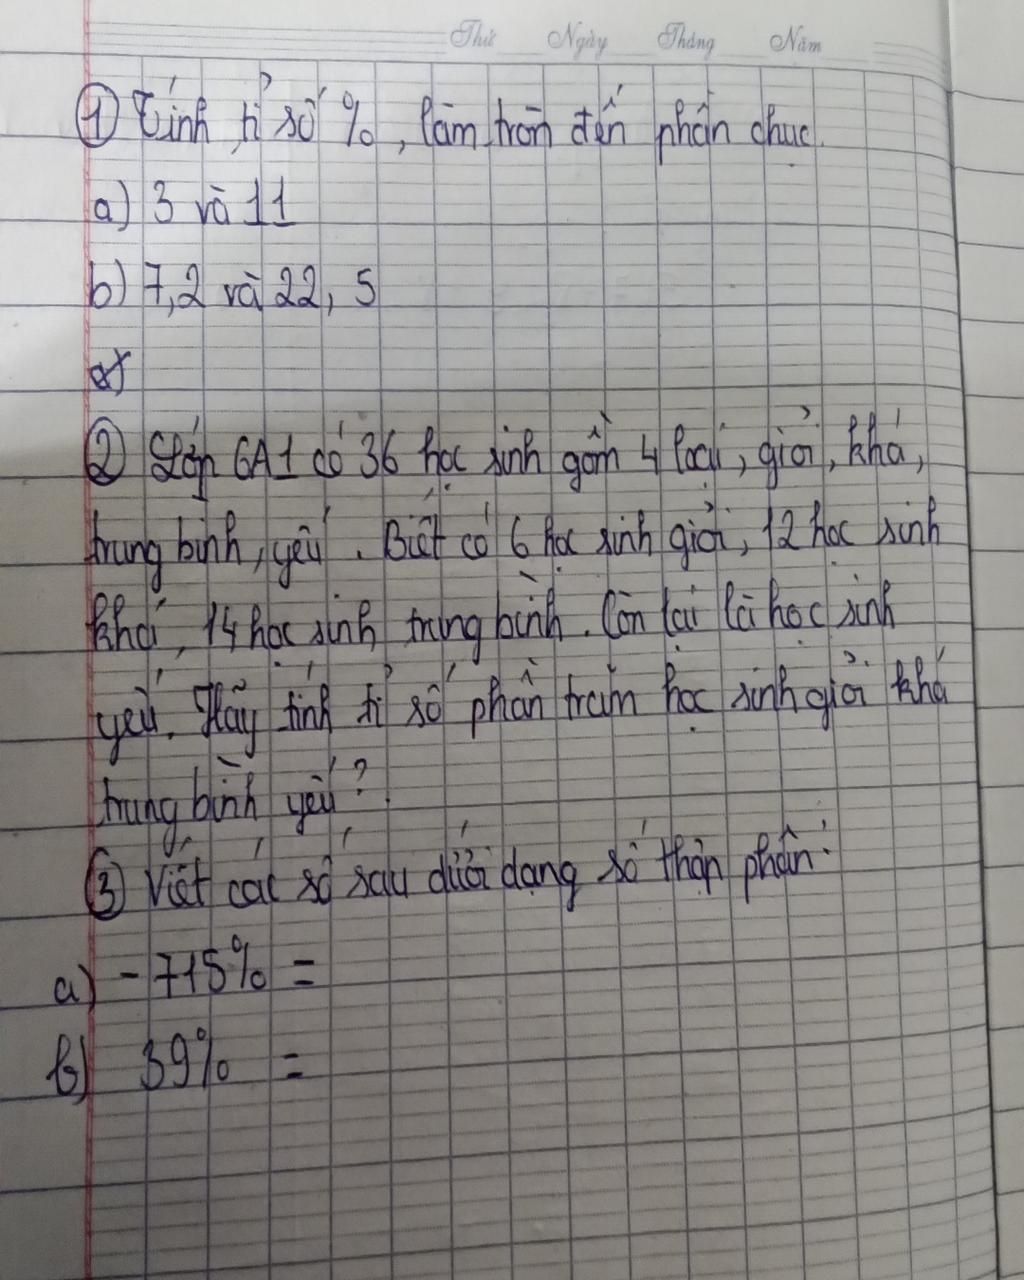 Thứ Ngày Tháng Năm
① Tính tỉ số %, làm tròn đến phần chục.
a) 3 và 11
b) 7,2 và 22,5
② Lớp 6A1 có 36 học sinh gồm 4 loại, giỏi, khá,
trung bình, yếu. Biết có 6 học sinh giỏi, 12 học sinh
khá, 14 học sinh trung bình. Còn lại là học sinh
yếu. Hãy tính tỉ số phần trăm học sinh giỏi khá
trung bình yếu?
③ Viết các số sau dưới dạng số thập phân:
a) -715% =
b) 39% =